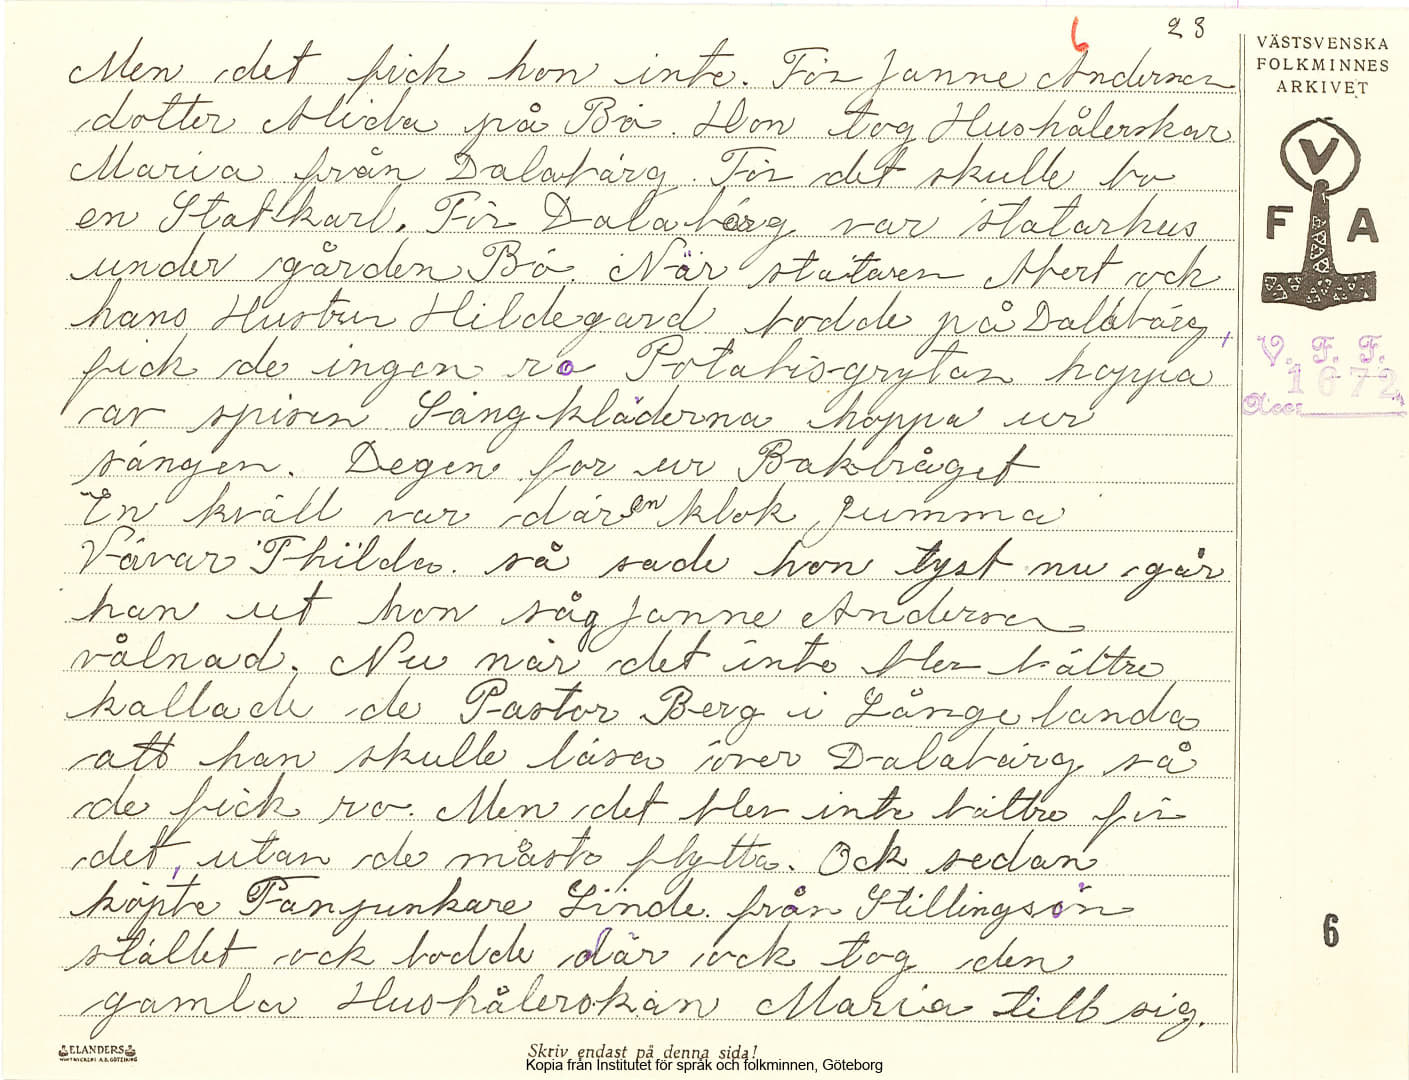 6
28
Men det fick hon inte. För Janne Anderson
dotter Alida på Bö. Hon tog Hushålerskar
Maria från Dalabärg. För det skulle bo
en Statkarl. För Dalabärg var statarhus
under gården Bö. När stataren Abert ock
hans Hustur Hildegard bodde på Dalabärg,
fick de ingen ro Potatisgrytan hoppa
av spisen Sängkläderna hoppa ur
sängen. Degen for ur Baktråget
En kväll var där en klok Gumma
Vävar Thilda. så sade hon tyst nu går
han ut hon såg Janne Anderson
vålnad. Nu när det inte blev bättre
kallade de Pastor Berg i Långelanda
att han skulle läsa över Dalabärg så
de fick ro. Men det blev inte bättre för
det, utan de måste flytta. Ock sedan
köpte Fanjunkare Linde. från Stillingsön
stället ock bodde där ock tog den
gamla Hushålerskan Maria till sig.
VÄSTSVENSKA
FOLKMINNES
ARKIVET
V
F A
V. F. F.
1672
Acc:
6
ELANDERS
Skriv endast på denna sida!
Kopia från Institutet för språk och folkminnen, Göteborg